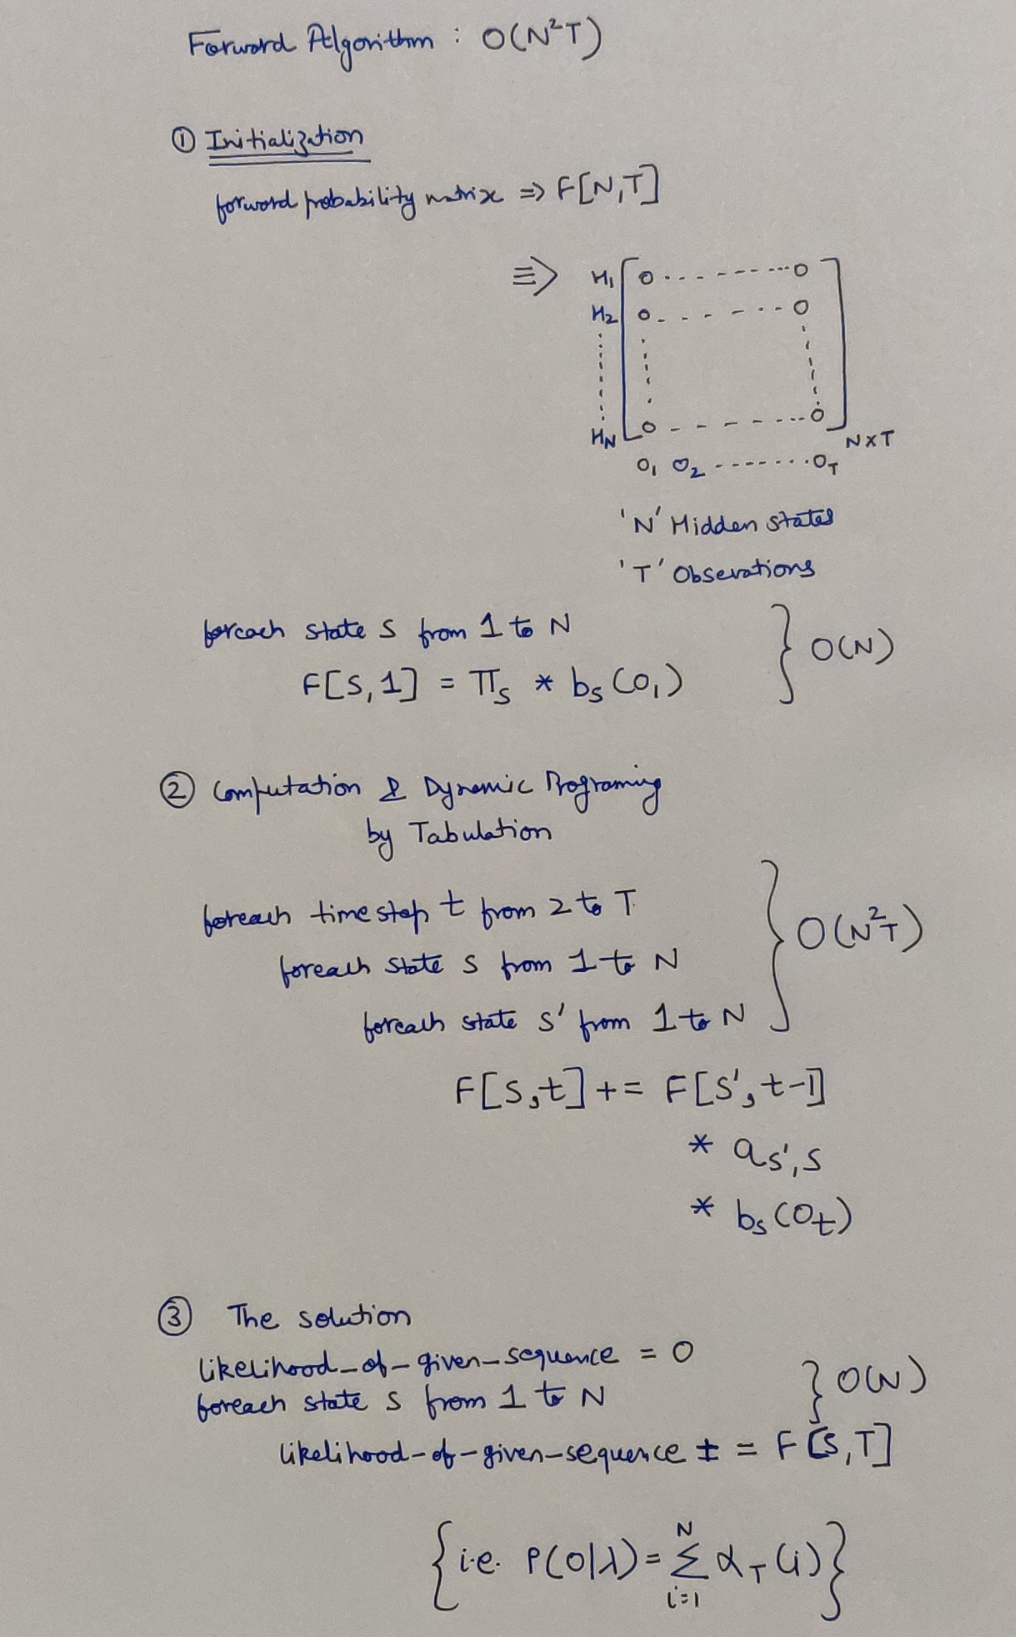 Forward Algorithm : O(N²T)
① Initialization
forward probability matrix => F[N,T]
≡> H₁ [ 0 . . - - - - - - ... 0 ]
H₂ 0 . - - - - - . . 0
H_N 0 - - - - - ... 0
N×T
O₁ O₂ - - - - - ... O_T
'N' Hidden states
'T' Obsevations
foreach state s from 1 to N
} O(N)
F[S,1] = π_s * b_s(o₁)
② Computation & Dynamic Programing
by Tabulation
foreach time step t from 2 to T
} O(N²T)
foreach state s from 1 to N
foreach state s' from 1 to N
F[S,t] += F[S',t-1]
* a_s',s
* b_s(O_t)
③ The solution
likelihood_of_given_sequence = 0
} O(N)
foreach state s from 1 to N
likelihood-of-given-sequence += F[S,T]
{i.e. P(O|λ) = Σ_{i=1}^{N} α_T(i)}